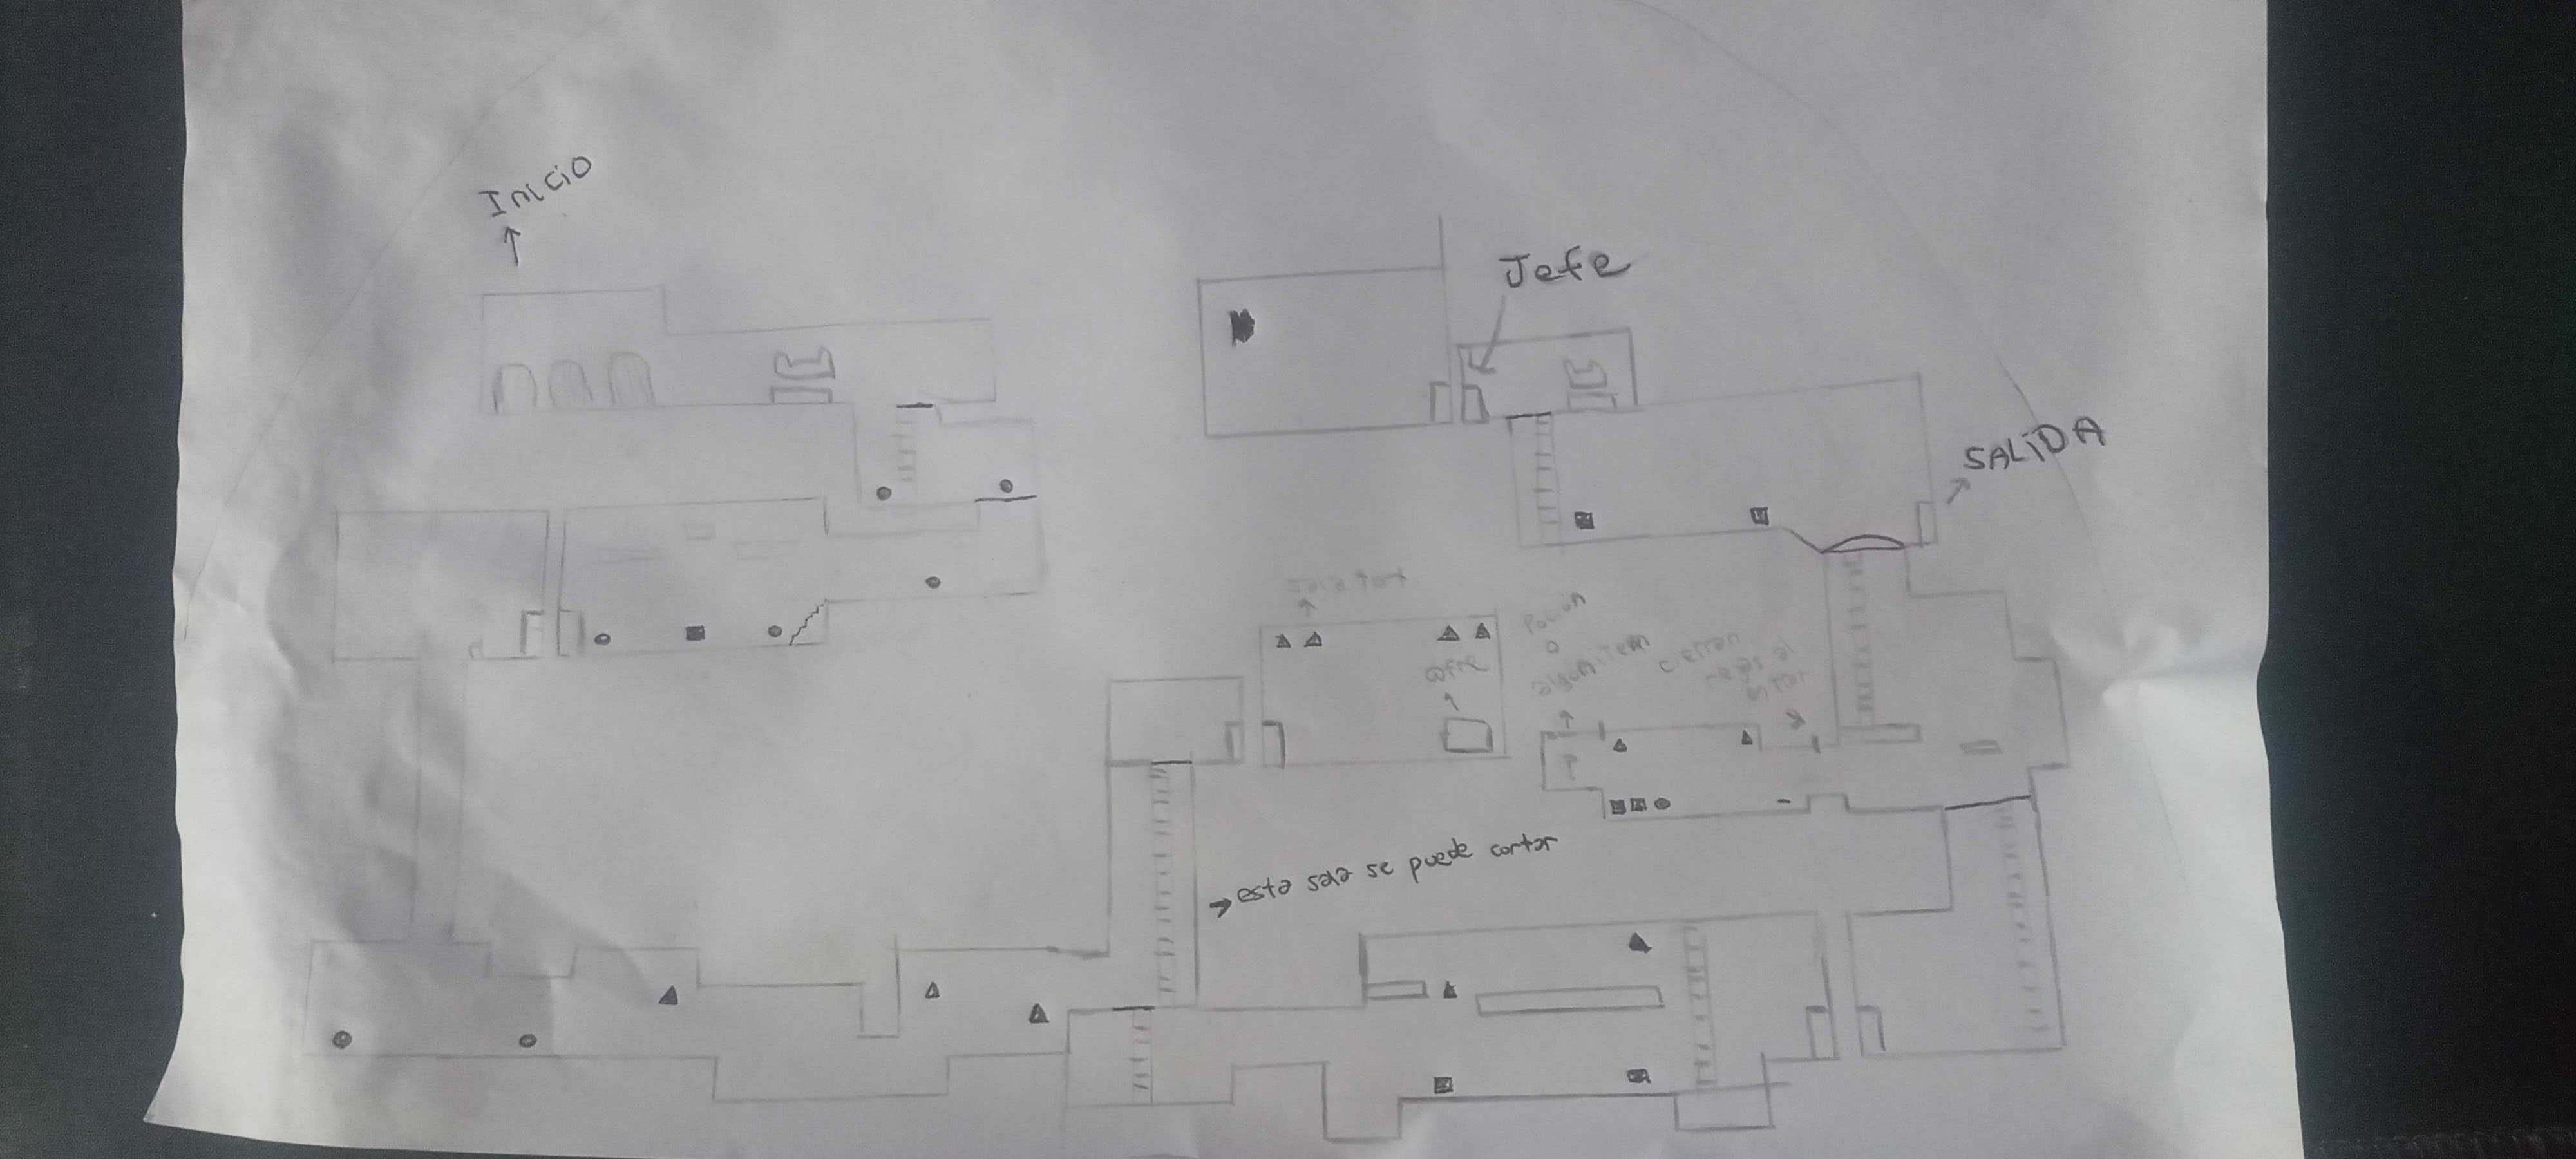 Inicio
Jefe
SALIDA
sala
Pocion
o
algun item
cierran
rejas al
entrar
cofre
P
→ esta sala se puede cortar